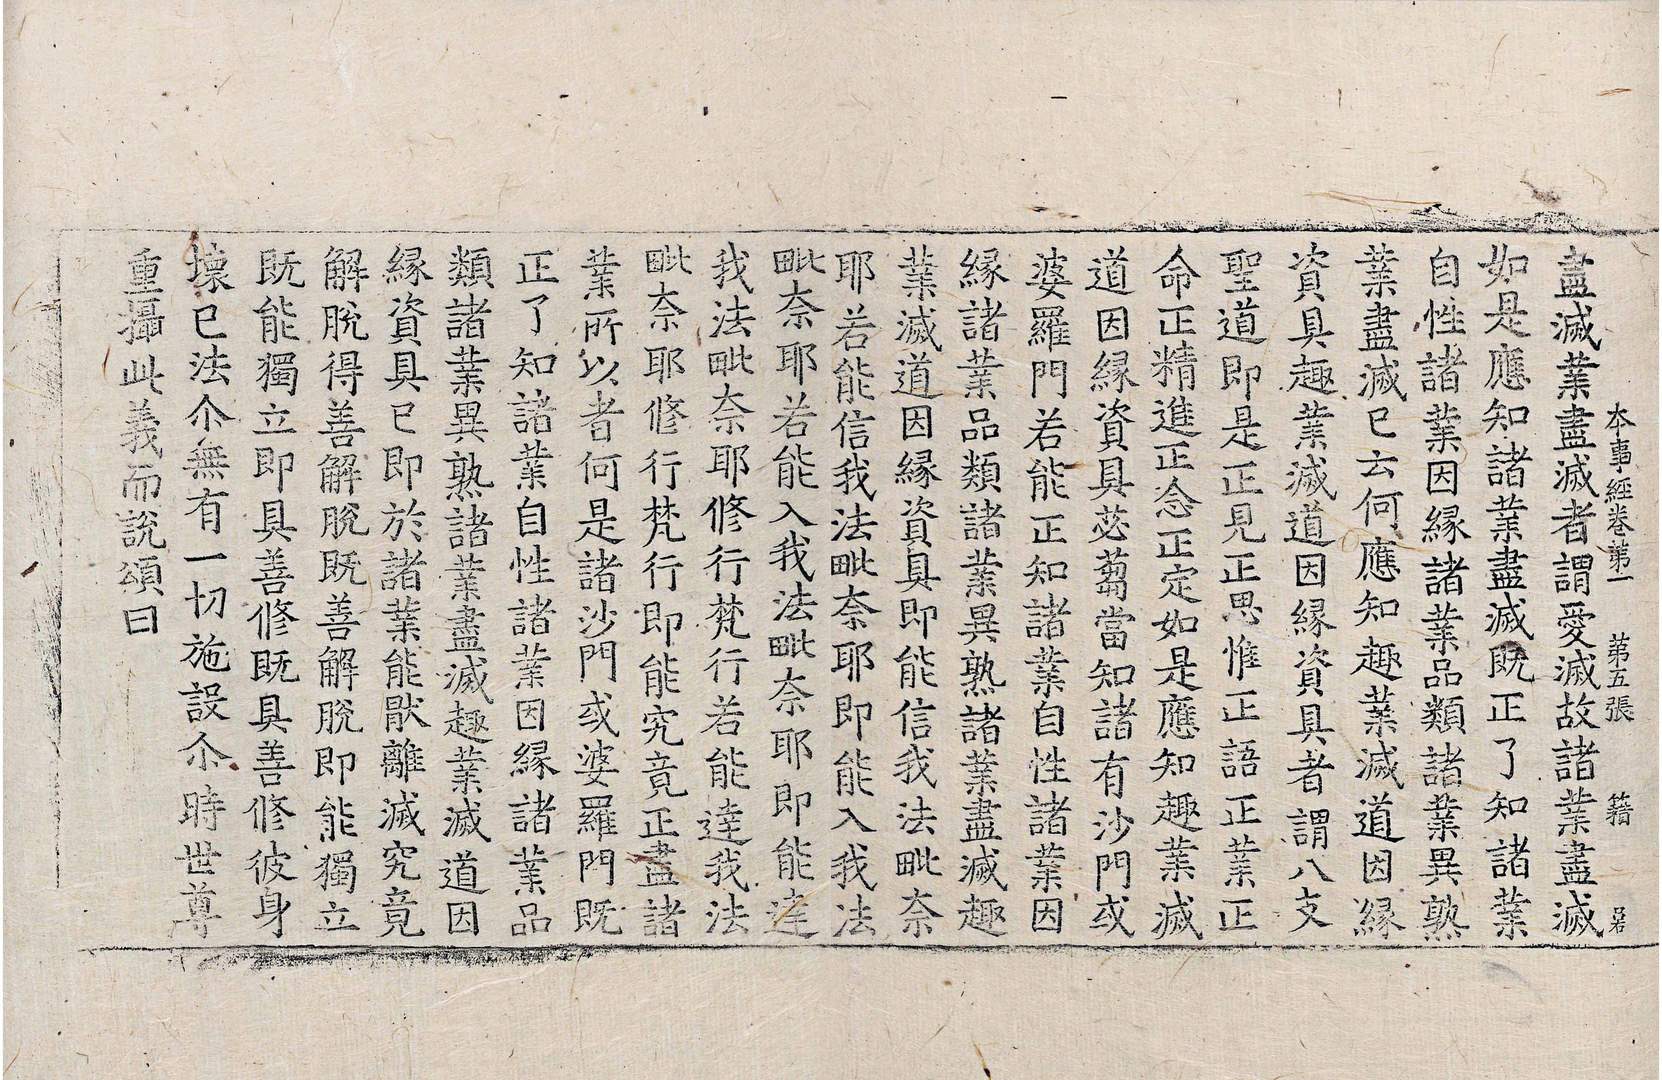 本事經卷第一 第五張 籍
盡滅業盡滅者謂愛滅故諸業盡滅
如是應知諸業盡滅既正了知諸業
自性諸業因縁諸業品類諸業異熟
業盡滅已云何應知趣業滅道因縁
資具趣業滅道因縁資具者謂八支
聖道即是正見正思惟正語正業正
命正精進正念正定如是應知趣業滅
道因縁資具苾蒭當知諸有沙門或
婆羅門若能正知諸業自性諸業因
縁諸業品類諸業異熟諸業盡滅趣
業滅道因縁資具即能信我法毗奈
耶若能信我法毗奈耶即能入我法
毗奈耶若能入我法毗奈耶即能達
我法毗奈耶修行梵行若能達我法
毗奈耶修行梵行即能究竟正盡諸
業所以者何是諸沙門或婆羅門既
正了知諸業自性諸業因縁諸業品
類諸業異熟諸業盡滅趣業滅道因
縁資具已即於諸業能猒離滅究竟
解脫得善解脫既善解脫即能獨立
既能獨立即具善修既具善修彼身
壞已法尒無有一切施設尒時世尊
重攝此義而說頌曰